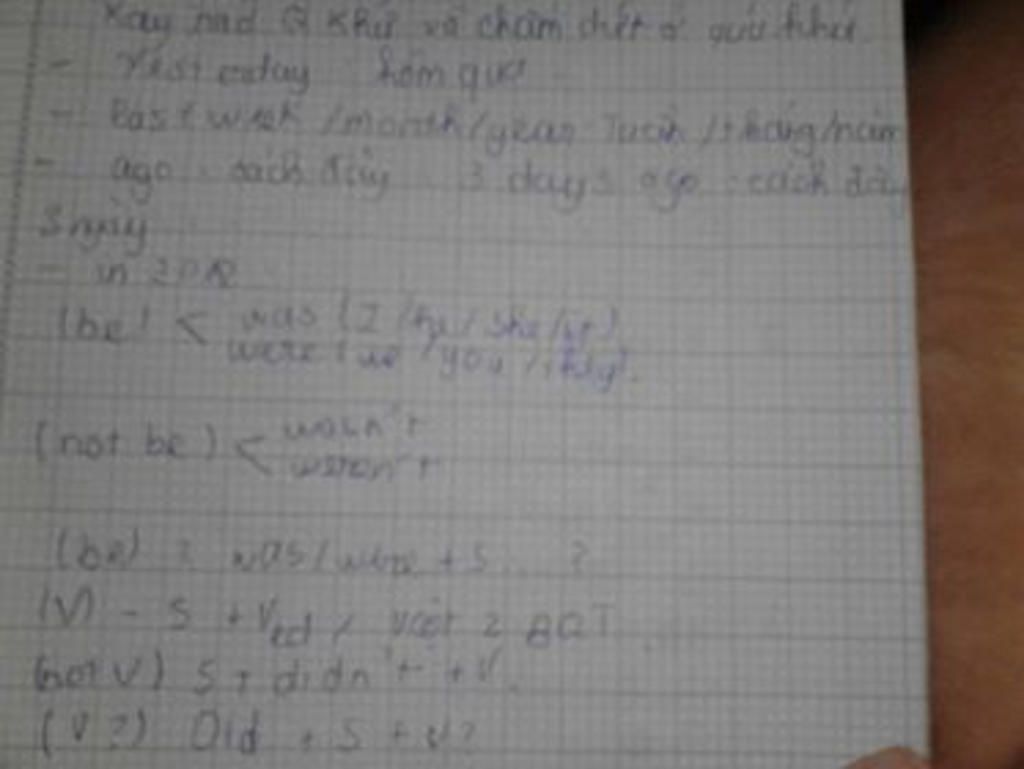 Xảy ra ở Q khứ và chấm dứt ở quá khứ
- Yesterday hôm qua
- Last week /month/year Tuần /tháng/năm
- ago : cách đây 3 days ago : cách đây
3 ngày
- in 2002
(be) < was (I /he/ she/it)
were (we /you /they).
(not be) < wasn't
weren't
(be) ? was/were + S... ?
(V) - S + Ved / cột 2 BQT
(not V) S + didn't + V.
(V?) Did + S + V?